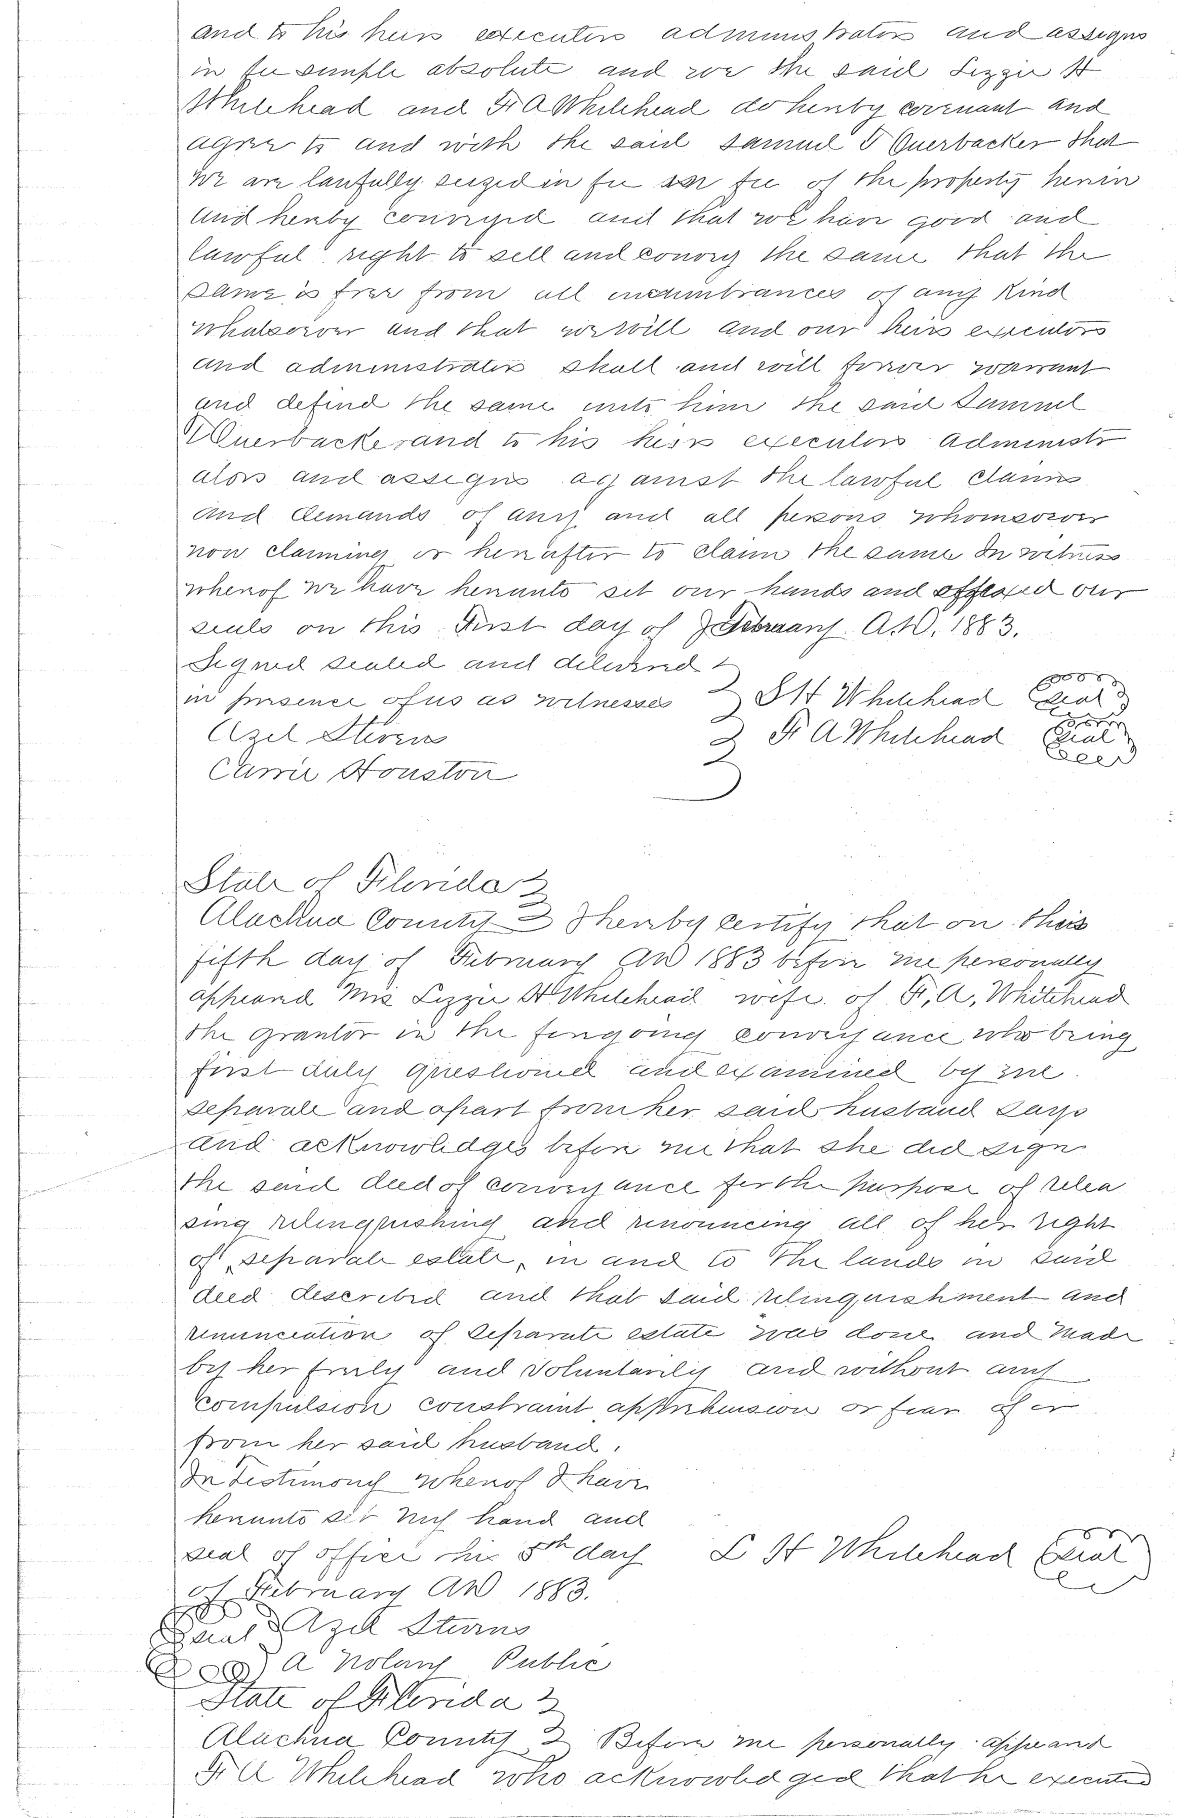 and to his heirs executors administrators and assigns
in fee simple absolute and we the said Lizzie H
Whitehead and F. A Whitehead do hereby covenant and
agree to and with the said Samuel T Querbacker that
we are lawfully seized in fee in fee of the property herein
and hereby conveyed and that we have good and
lawful right to sell and convey the same that the
same is free from all incumbrances of any kind
whatsoever and that we will and our heirs executors
and administrators shall and will forever warrant
and defend the same unto him the said Samuel
T Querbacker and to his heirs executors administr
ators and assigns against the lawful claims
and demands of any and all persons whomsoever
now claiming or hereafter to claim the same In witness
whereof we have hereunto set our hands and affixed our
seals on this First day of February A.D. 1883.
Signed sealed and delivered
in presence of us as witnesses L H Whitehead Seal
Azel Stevens F. A Whitehead Seal
Carrie Houston
State of Florida
Alachua County I hereby certify that on this
fifth day of February AD 1883 before me personally
appeared Mrs Lizzie H Whitehead wife of F. A. Whitehead
the grantor in the foregoing conveyance who being
first duly questioned and examined by me
separate and apart from her said husband says
and acknowledges before me that she did sign
the said deed of conveyance for the purpose of relea
sing relinquishing and renouncing all of her right
of separate estate, in and to the lands in said
deed described and that said relinquishment and
renunciation of separate estate was done and made
by her freely and voluntarily and without any
compulsion constraint apprehension or fear of or
from her said husband.
In Testimony whereof I have
hereunto set my hand and
seal of office this 5th day L H Whitehead Seal
of February AD 1883.
Seal Azel Sterns
A Notary Public
State of Florida
Alachua County Before me personally appeared
F. A Whitehead who acknowledged that he executed